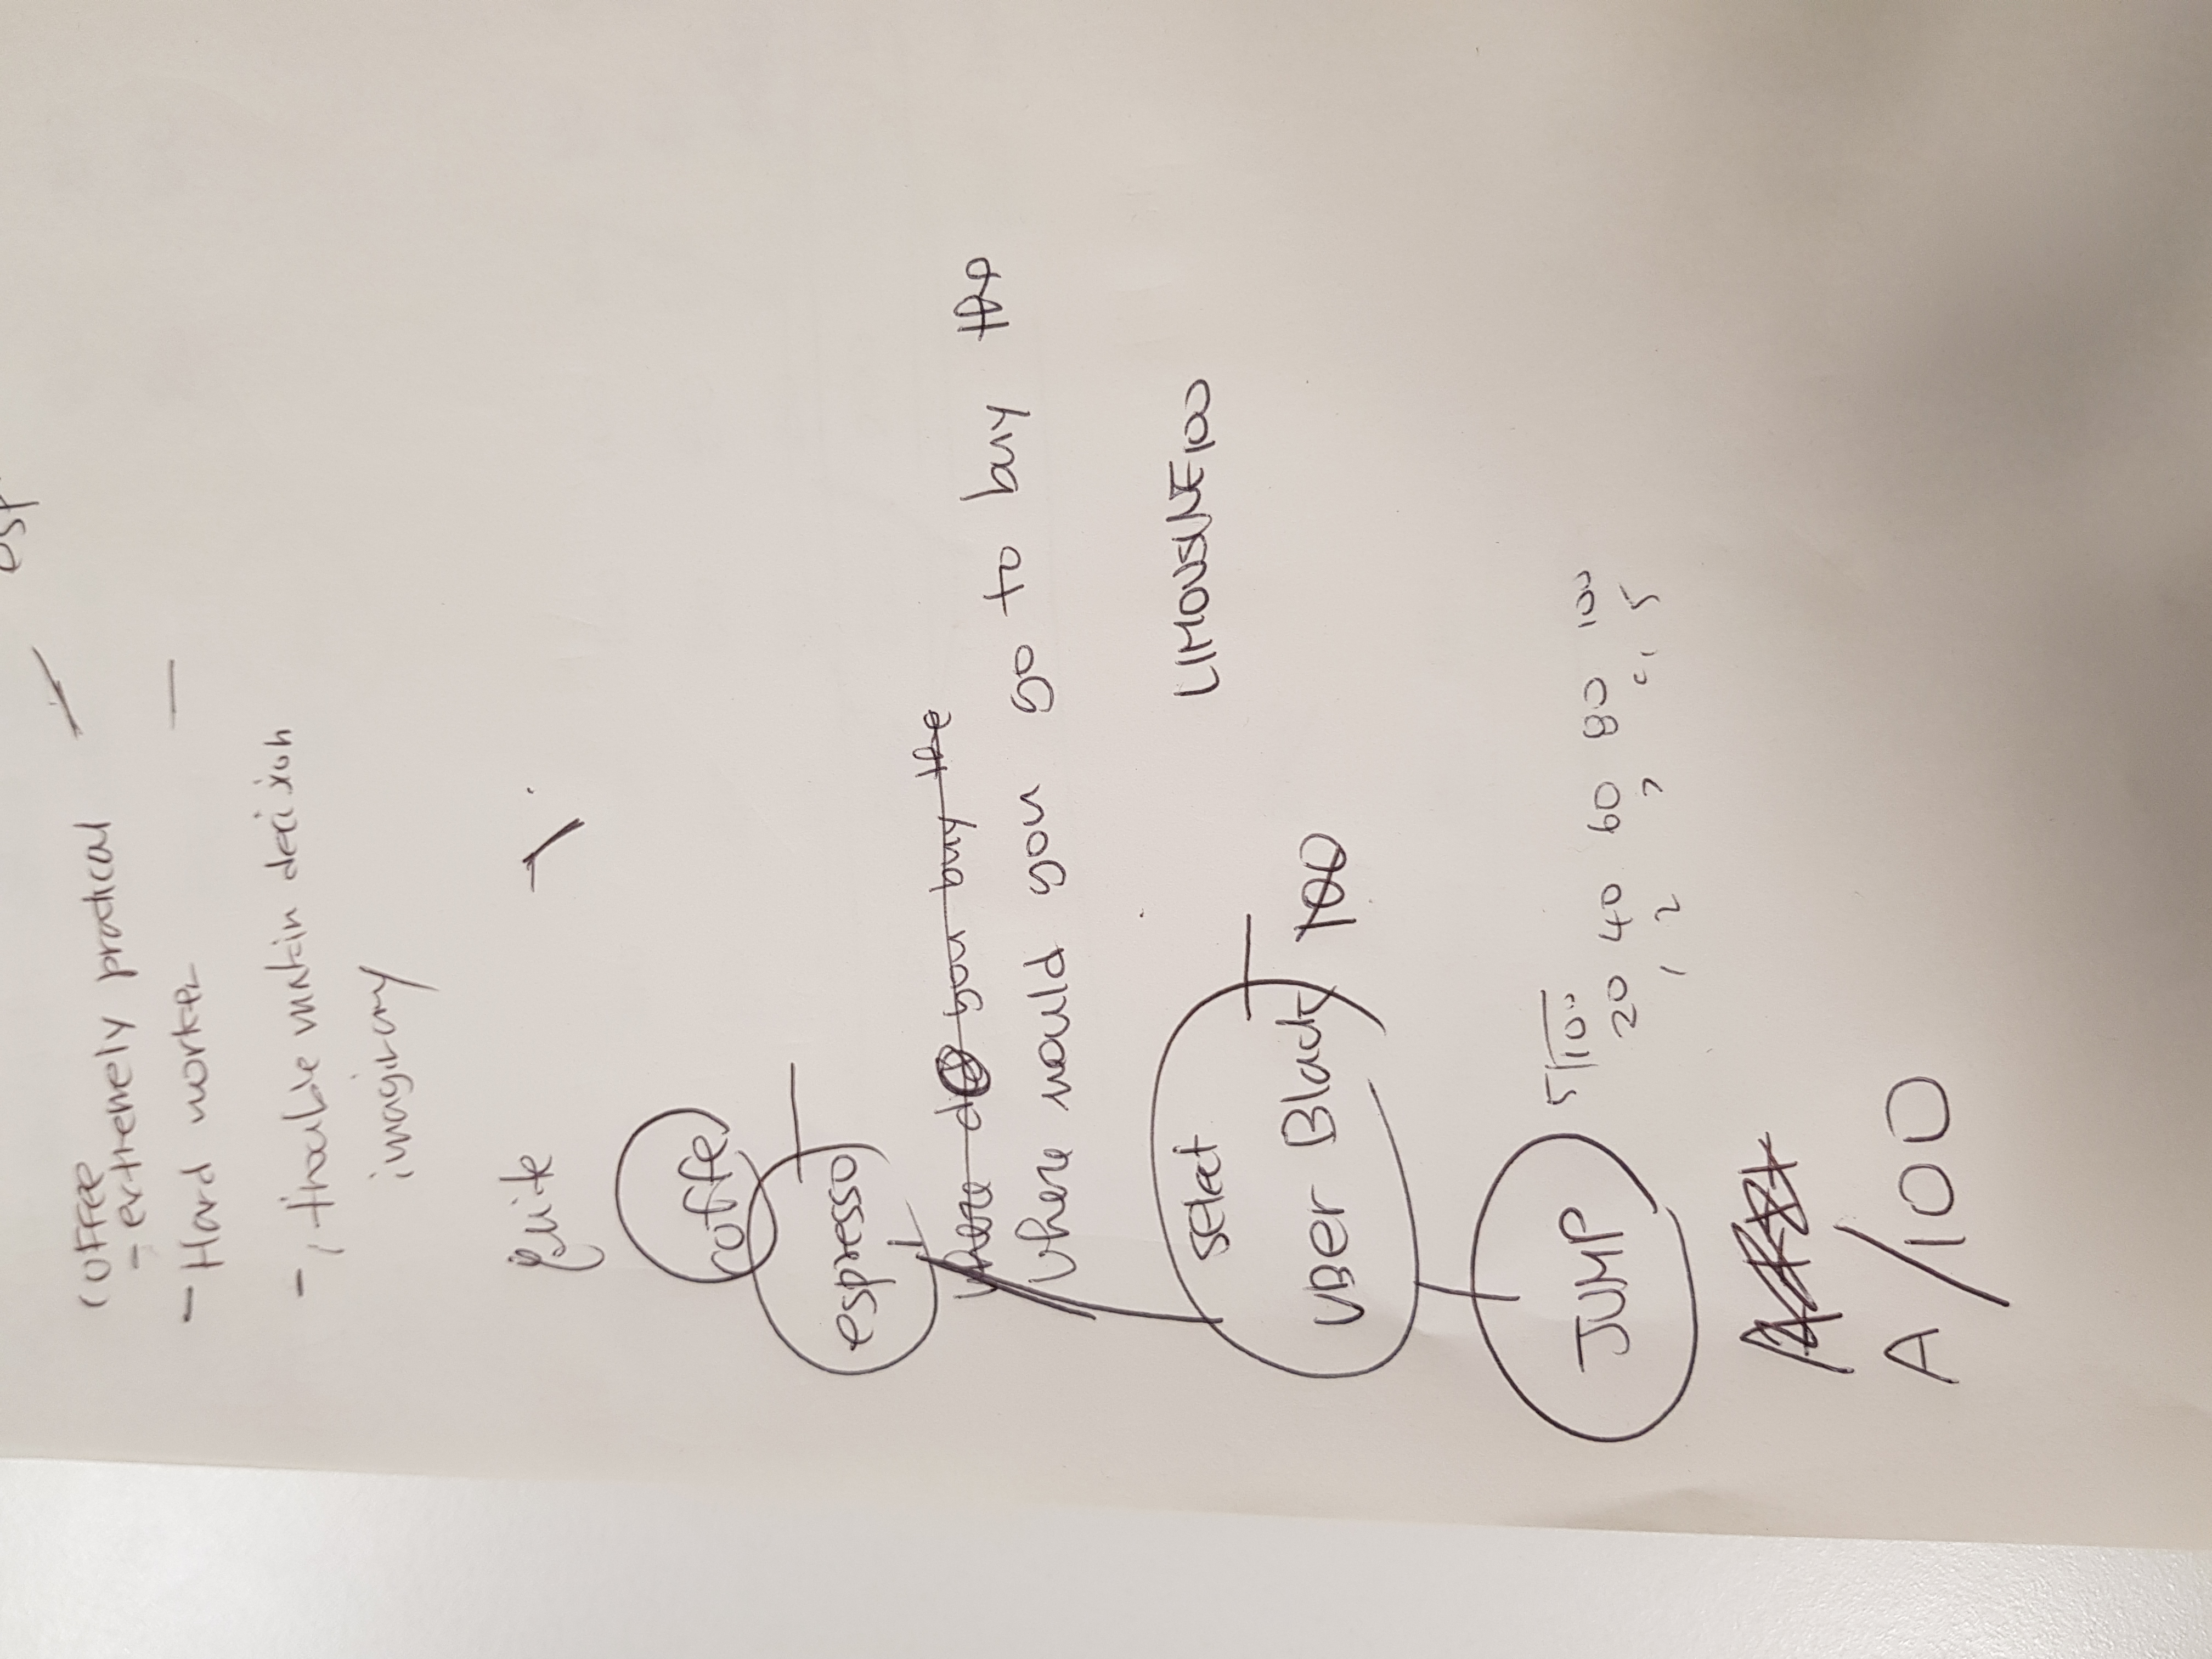 esp
COFFEE
- extremely pratical
- Hard worker
- , trouble makin decision
imaginary
coffe
espresso
where do you buy the
where would you go to buy the
select
LIMOUSINE100
UBer Black 100
JUMP
5/100
20 40 60 80 100
1 2 5
A/100